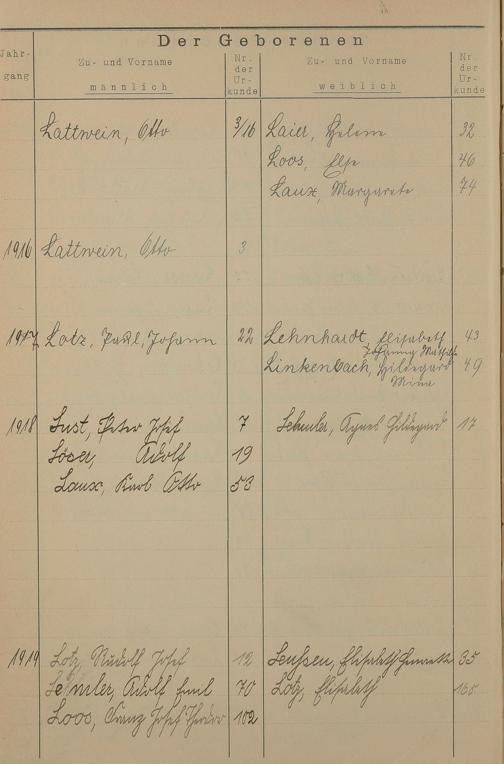 Der Geborenen
Jahrgang
Zu- und Vorname
männlich
Nr. der Urkunde
Zu- und Vorname
weiblich
Nr. der Urkunde
Lattwein, Otto 3/16 Laier, Helene 32
Loos, Else 46
Laux, Margarete 74
1916 Lattwein, Otto 3
1917 Lotz, Paul, Johann 22 Lehnhardt, Elisabeth 43
Linkenbach, Hildegard 49
Mina
1918 Lust, Peter Josef 7 Lehnler, Agnes Hildegard 17
Löser, Adolf 19
Laux, Karl Otto 53
1919 Lotz, Rudolf Josef 12 Leussen, Elisabeth 35
Lehnler, Adolf Emil 70 Lotz, Elisabeth 165
Loos, Franz Josef 102